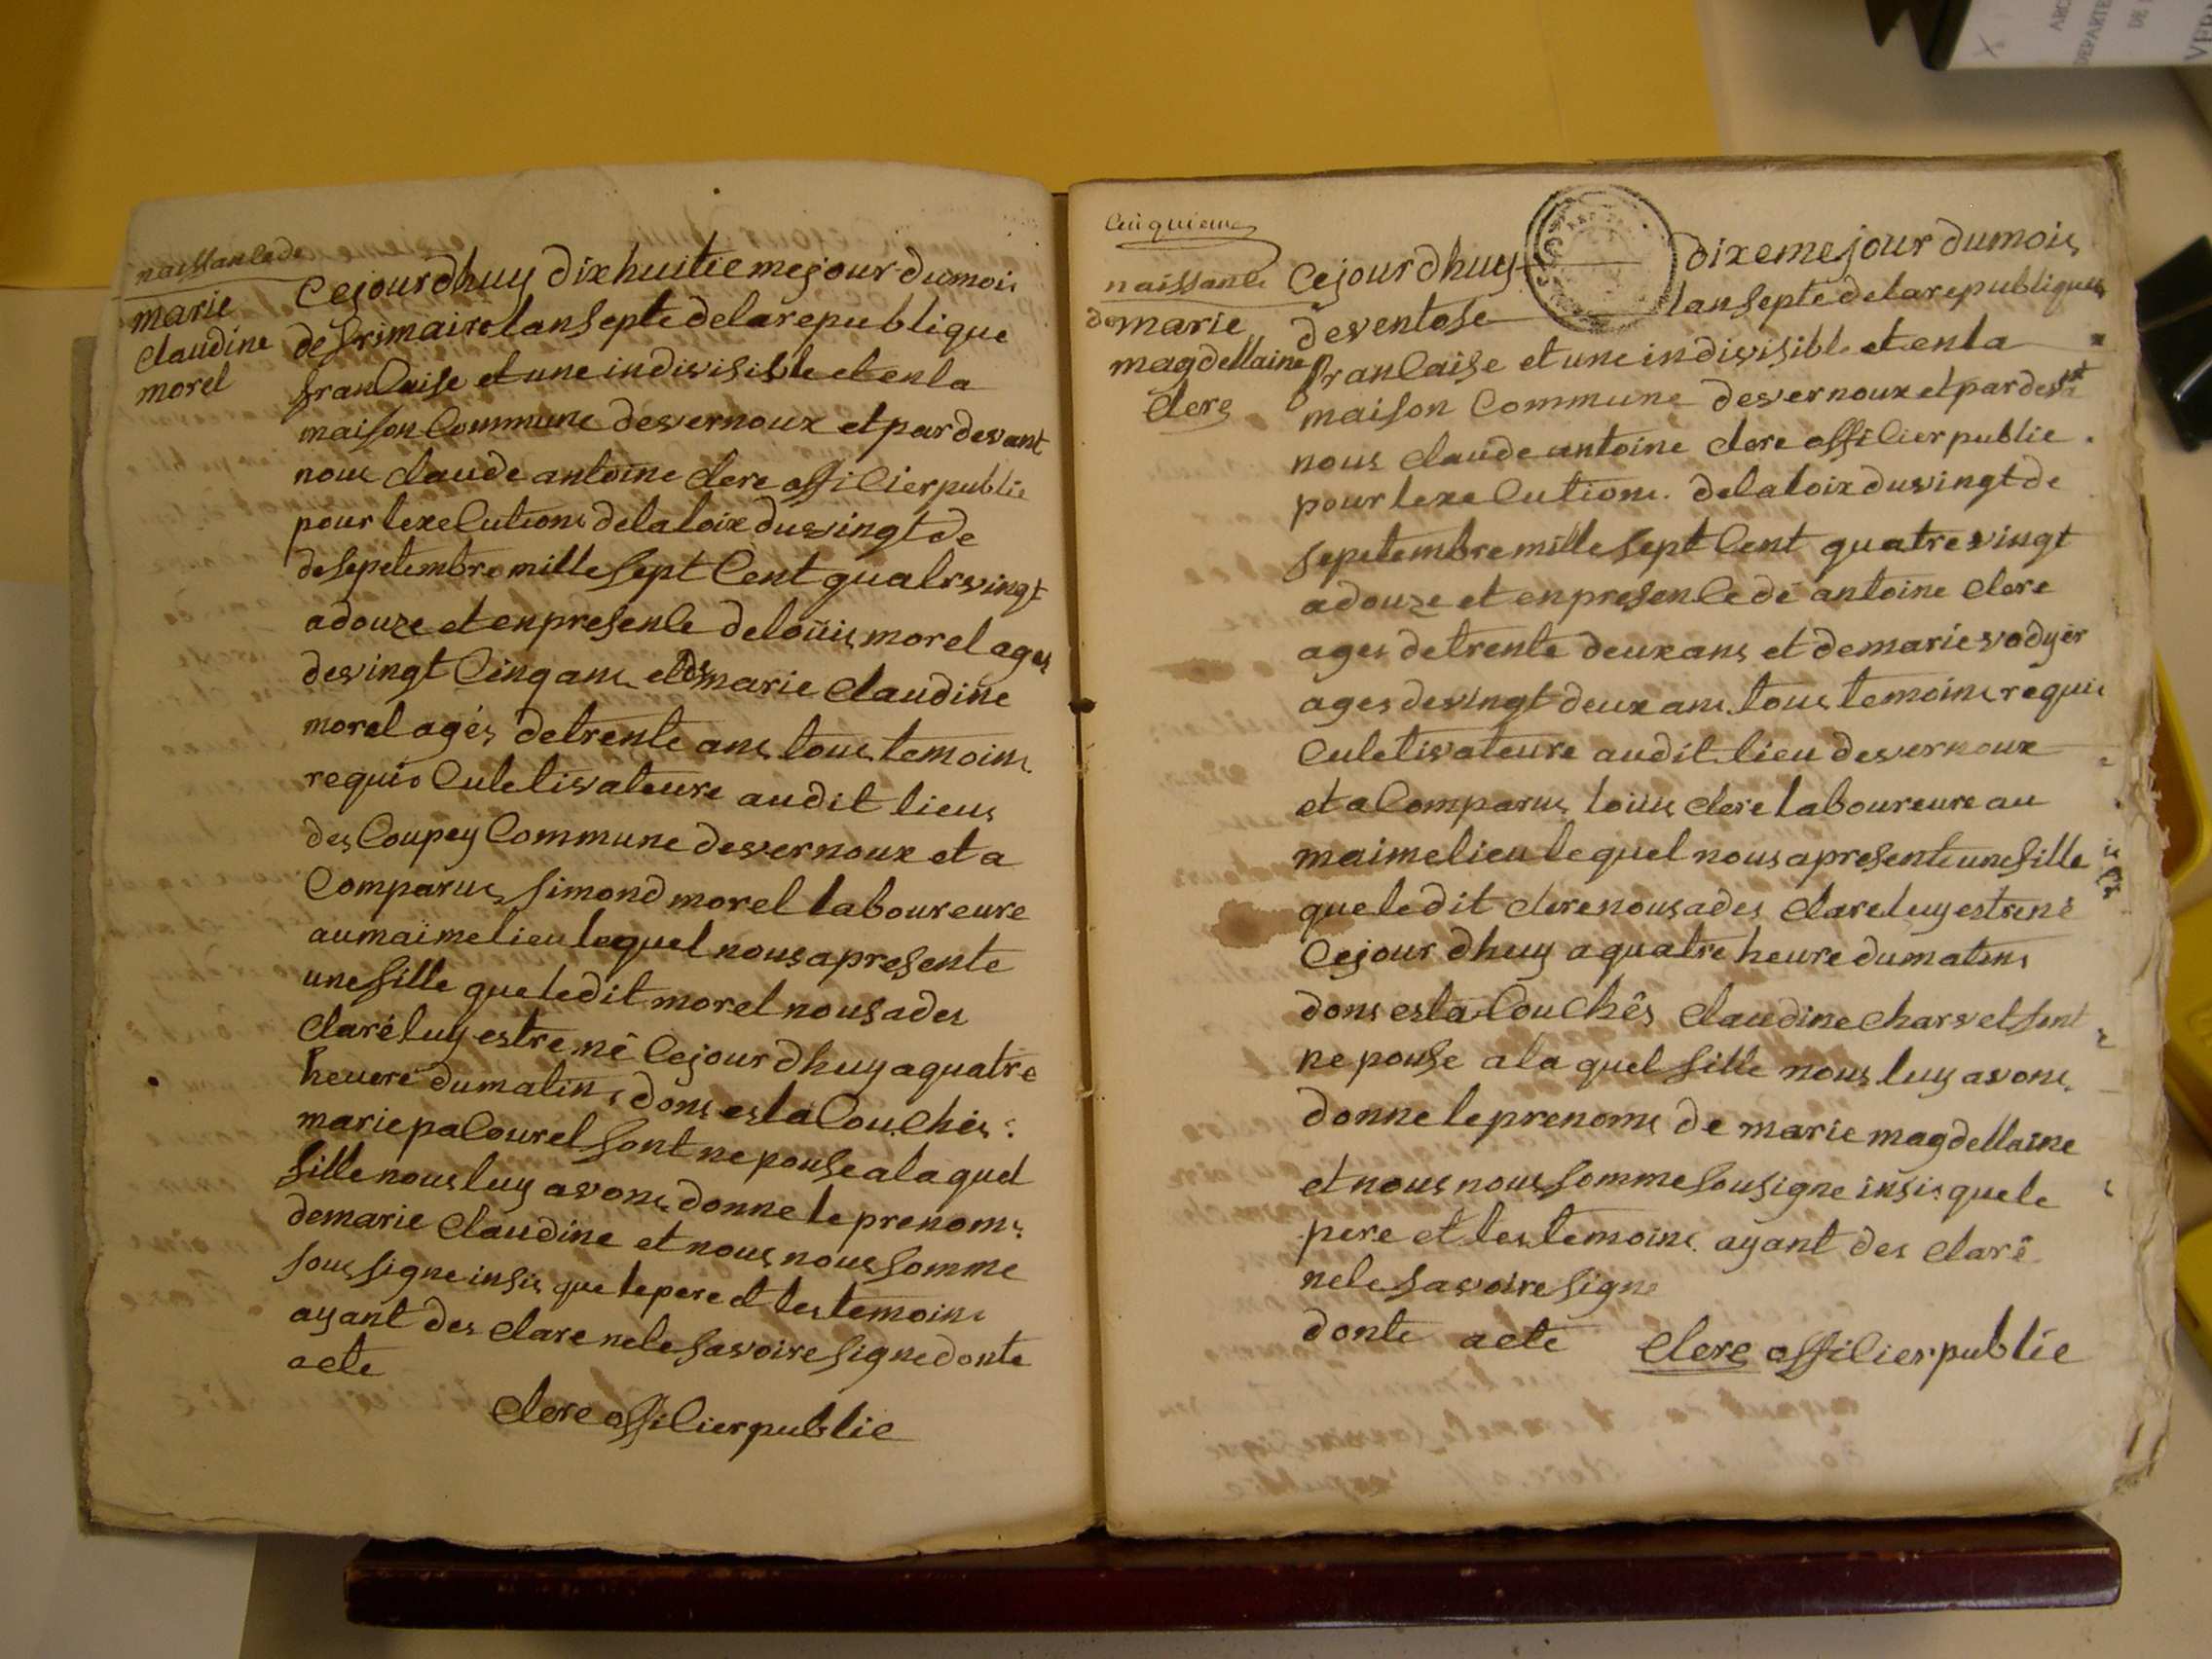 naissance de
marie
claudine
morel
Cejourdhuy dixhuitiemejour dumois
defrimaire lan septe delarepublique
francaise et une indivisible et enla
maison Commune devernoux et par devant
nous claude antoine clerc officier public
pour lexecutions dela loix du vingt de
de sepetembre mille sept Cent quatrvingt
adouze et enpresence deloüis morel ages
devingt Cinq ans et de marie Claudine
morel agés detrente ans tous temoins
requis Culetivateure audit lieus
des Coupey Commune devernoux et a
Comparus simond morel laboureure
aumaime lieu lequel nous apresente
une fille que ledit morel nous a des
claré luy estre né Cejour dhuy a quatre
heuere du matin, dons es la Couchés
marie pacouret sont nepouse ala quel
fille nous luy avons donne le prenoms
demarie Claudine et nous nous somme
sous signe insis que lepere et les temoins
ayant des clare nele savoire signe donte
acte
clerc officier public
Cinquieme
naissance
de marie
magdellaine
clerc
Cejourdhuy dixemejour dumois
deventose lan septe dela republiques
francaise et une indivisible et enla
maison Commune devernoux et par devt
nous claude antoine clerc officier public
pour lexecutions dela loix du vingt de
sepetembre mille sept Cent quatre vingt
adouze et enpresence de antoine clerc
ages detrente deux ans et de marie vodyer
ages devingt deux ans tous temoins requis
Culetivateure audit lieu devernoux
et a Comparus loüis clerc laboureure au
maime lieu lequel nous apresente une fille
que ledit clerc nous a des claré luy estre né
Cejour dhuy a quatre heure du matins
dons es la Couchés Claudine charvet sont
nepouse ala quel fille nous luy avons
donne leprenoms de marie magdellaine
et nous nous somme sousigne insis que le
pere et les temoins ayant des claré
nele savoire signe
donte acte clerc officier public